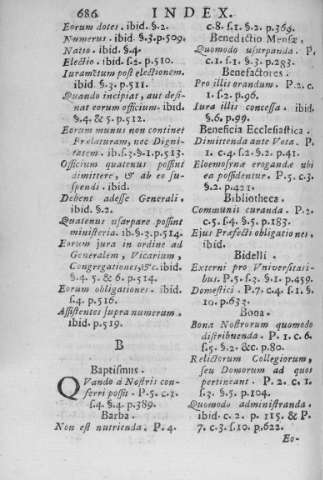 686. INDEX.
Eorum dotes. ibid. §.2.
Numerus. ibid. §.3. p.509.
Natio. ibid. §.4.
Electio. ibid. §.2. p.510.
Iuramẽtum post electionem.
ibid. §.3. p.511.
Quando incipiat, aut desi-
nat eorum officium. ibid.
§.4. & 5. p.512.
Eorum munus non continet
Prælaturam, nec Digni-
tatem. ib. §.3. §.1. p.513.
Officium quatenus possint
dimittere, & ab eo su-
spendi. ibid.
Debent adesse Generali.
ibid. §.2.
Quatenus usurpare possint
ministeria. ib. §.3. p.514.
Eorum jura in ordine ad
Generalem, Vicarium,
Congregationes, &c. ibid.
§.4. 5. & 6. p.514.
Eorum obligationes. ibid.
§.4. p.516.
Assistentes supra numeram.
ibid. p.519.
B
Baptismus.
QVando à Nostris con-
ferri possit. P.5. c.1.
§.4. §.4. p.389.
Barba.
Non est nutrienda. P. 4.
c.8. §.1. §.2. p.364.
Benedictio Mensæ.
Quomodo usurpanda. P.
c.1. §.1. §.3. p.283.
Benefactores.
Pro illis orandum. P.2. c.
1. §.2. p.96.
Iura illis concessa. ibid.
§.6. p.99.
Beneficia Ecclesiastica.
Dimittenda ante Vota. P.
1. c.4. §.2. §.2. p.41.
Eleemosyna erogandæ ubi
ea possidentur. P.5. c.3.
§.2. p.421.
Bibliotheca.
Communis curanda. P.2.
c.5. §.4. §.5. p.183.
Ejus Præfecti obligationes,
ibid.
Bidelli.
Externi pro Vniversitati-
bus. P.5. §.2. §.1. p.459.
Domestici. P.7. c.4. §.1. §.
10. p.632.
Bona.
Bona Nostrorum quomodo
distribuenda. P. 1. c. 6.
§.5. §.2. &c. p.80.
Relictorum Collegiorum,
seu Domorum ad quos
pertineant. P. 2. c. 1.
§.3. §.5. p.104.
Quomodo administranda.
ibid. c. 2. p. 115. & P.
7. c.3. §.10. p.622.
Eo-